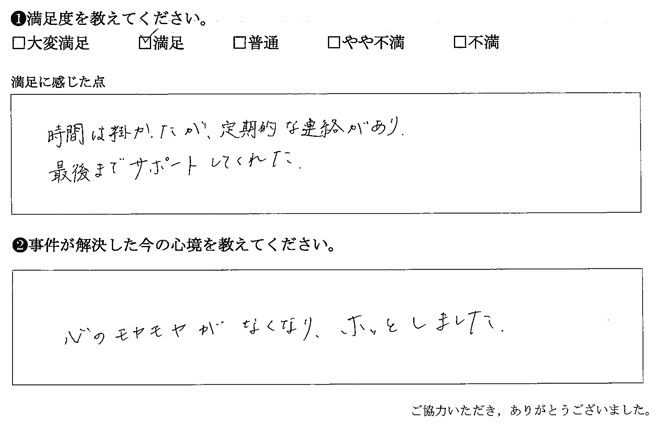 ❶満足度を教えてください。
□大変満足 ☑満足 □普通 □やや不満 □不満
満足に感じた点
時間は掛かたが、定期的な連絡があり、
最後までサポートしてくれた。
❷事件が解決した今の心境を教えてください。
心のモヤモヤがなくなり、ホッとしました。
ご協力いただき，ありがとうございました。